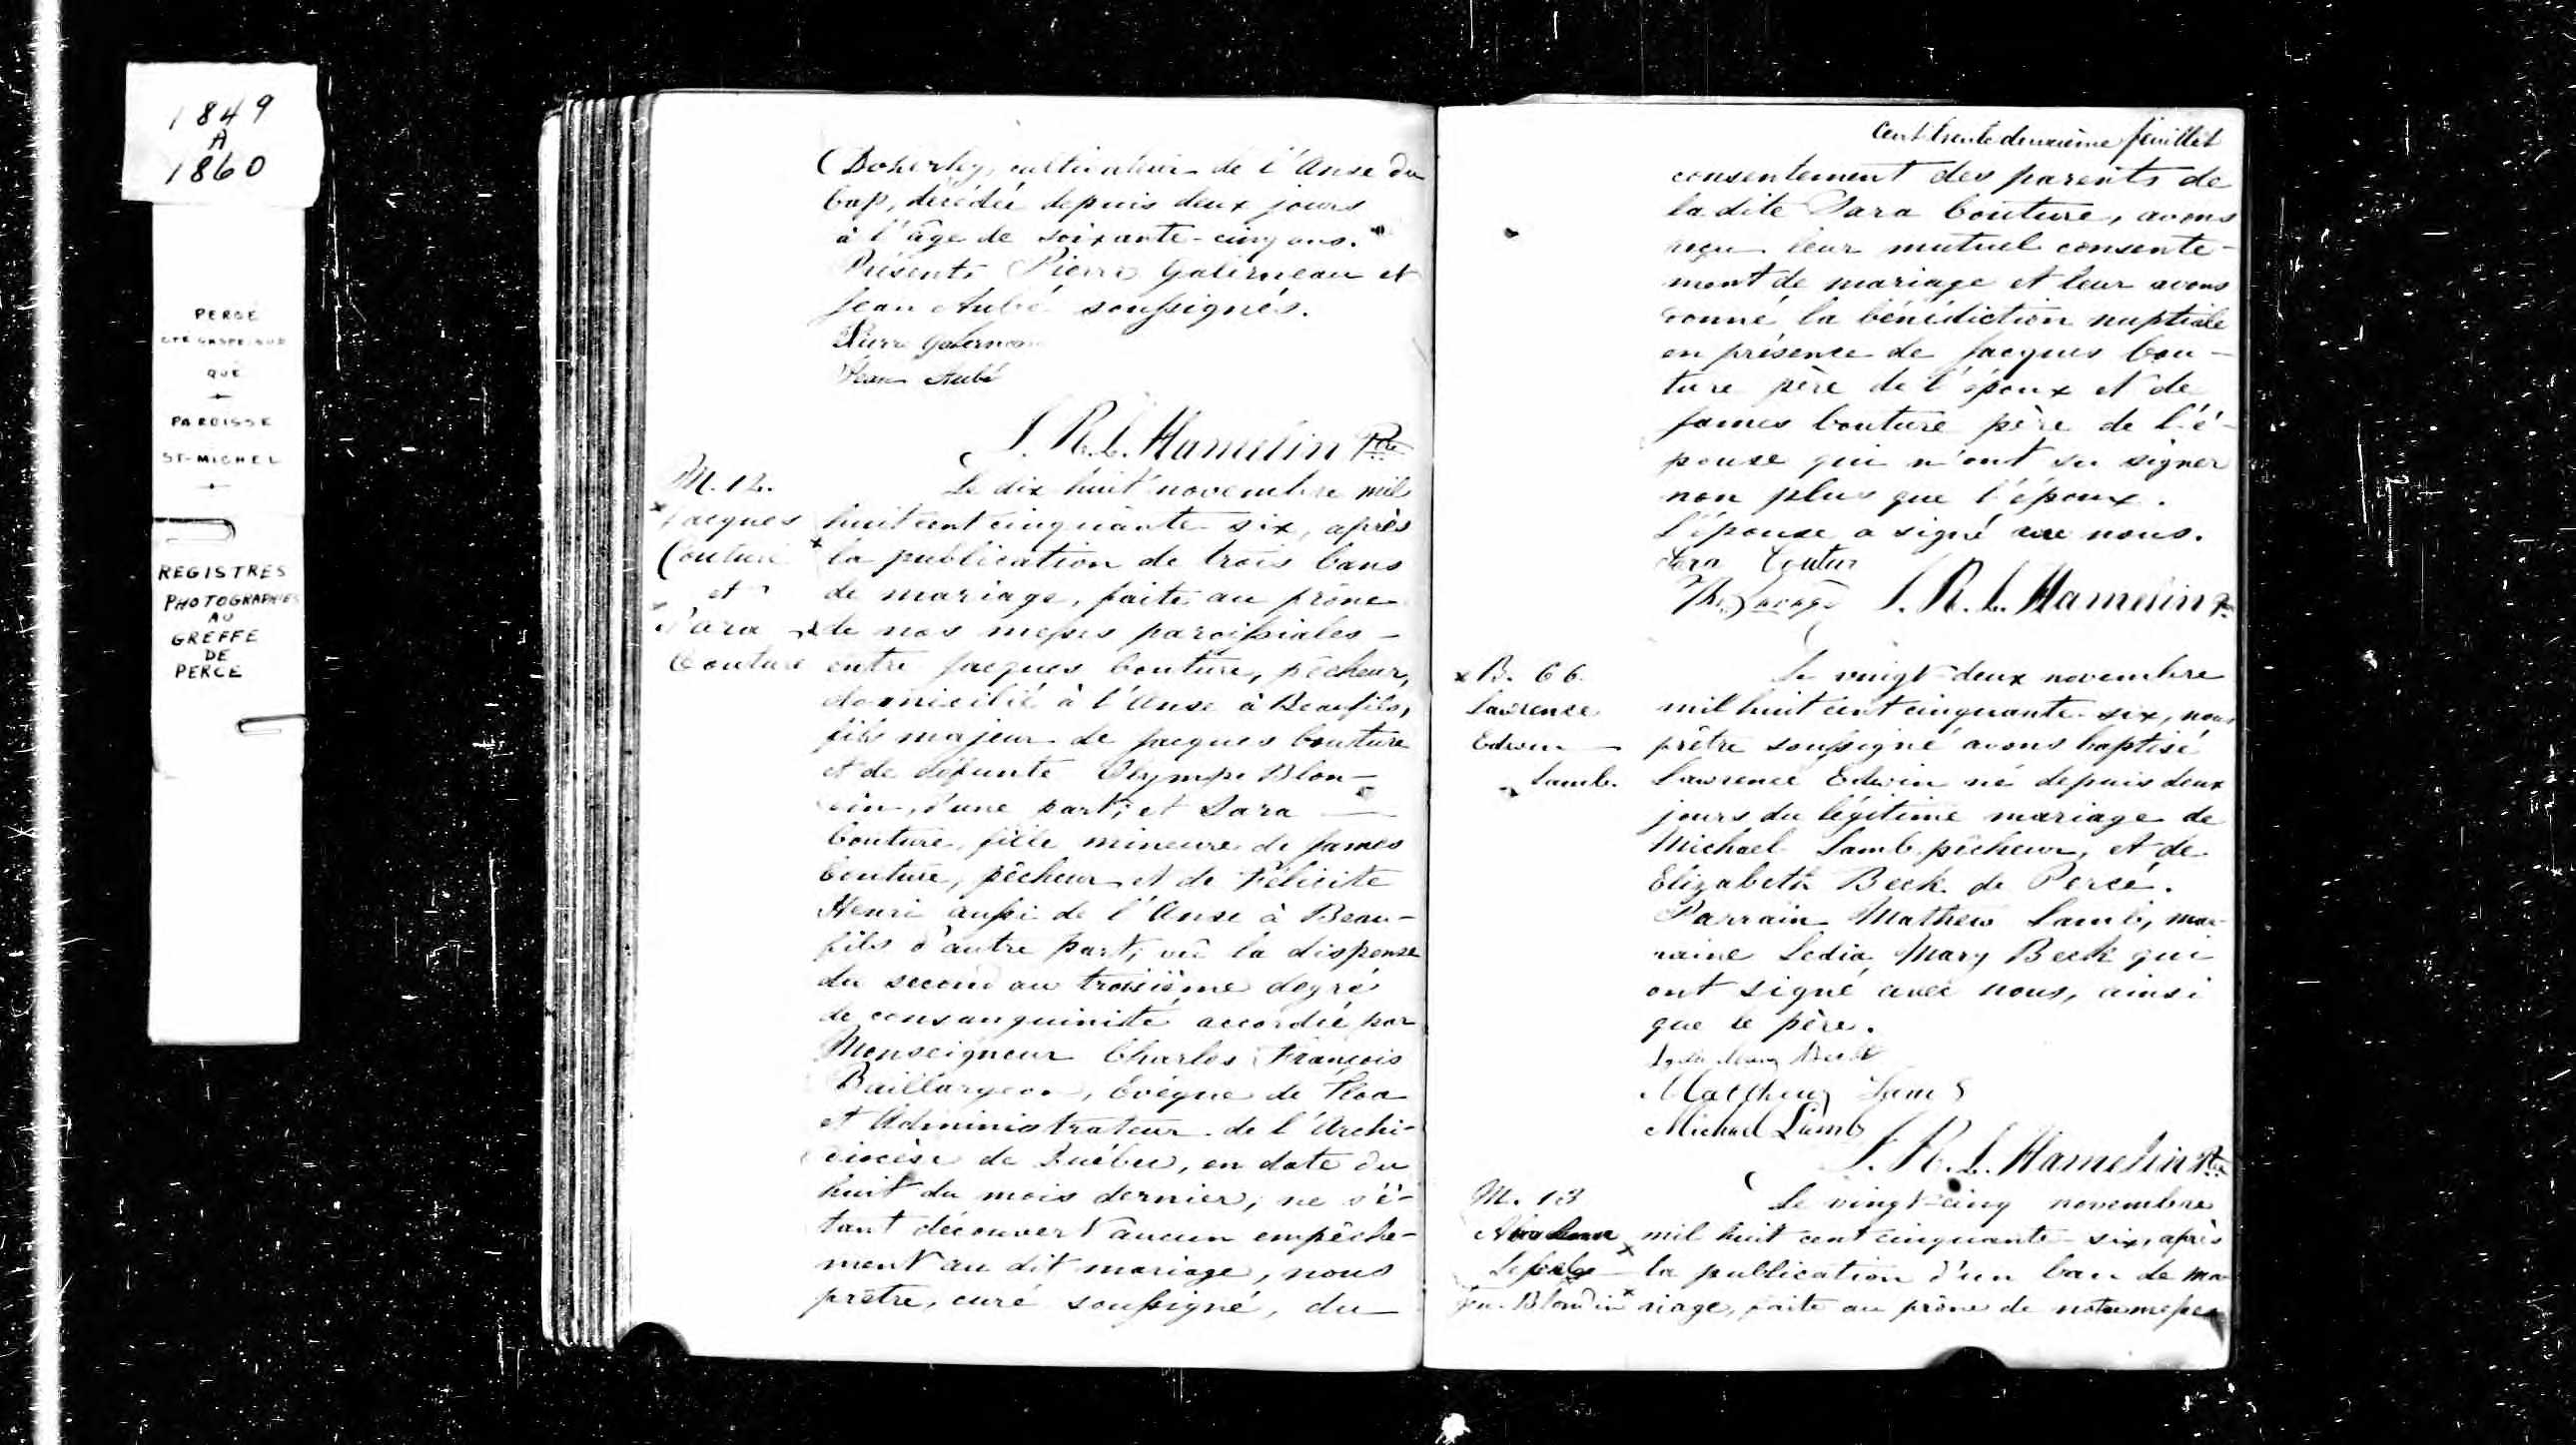 1849
A
1860
PERCÉ
CTÉ GASPÉ-SUD
QUÉ
PAROISSE
ST-MICHEL
REGISTRES
PHOTOGRAPHIÉS
AU
GREFFE
DE
PERCÉ
Doherty, cultivateur de l'Anse du
Cap, décédée depuis deux jours
à l'âge de soixante-cinq ans.
Présents Pierre Galerneau et
Jean Aubé soussignés.
Pierre Galerneau
Jean Aubé
J. R. L. Hamelin Ptre
M. 12.
Jacques
Couture
et
Sara
Couture
Le dix huit novembre mil
huit cent cinquante six, après
la publication de trois bans
de mariage, faite au prône
de nos messes paroissiales
entre Jacques Couture, pêcheur,
domicilié à l'Anse à Beaufils,
fils majeur de Jacques Couture
et de défunte Olympe Blon-
din, d'une part; et Sara
Couture, fille mineure de James
Couture, pêcheur et de Félicité
Henri aussi de l'Anse à Beau-
fils d'autre part; vu la dispense
du second au troisième degré
de consanguinité accordée par
Monseigneur Charles François
Baillargeon, Evêque de Tloa
et Administrateur de l'Archi-
diocèse de Québec, en date du
huit du mois dernier; ne s'é-
tant découvert aucun empêche-
ment au dit mariage, nous
prêtre, curé soussigné, du
Cent trente deuxième feuillet
consentement des parents de
la dite Sara Couture, avons
reçu leur mutuel consente-
ment de mariage et leur avons
donné la bénédiction nuptiale
en présence de Jacques Cou-
ture père de l'époux et de
James Couture père de l'é-
pouse qui n'ont su signer
non plus que l'époux.
L'épouse a signé avec nous.
Sara Coutur
Savage J. R. L. Hamelin Ptre
B. 66.
Lawrence
Edwin
Lamb.
Le vingt-deux novembre
mil huit cent cinquante-six, nous
prêtre soussigné avons baptisé
Lawrence Edwin né depuis deux
jours du légitime mariage de
Michael Lamb pêcheur, et de
Elizabeth Beck de Percé.
Parrain Mathew Lamb, mar-
raine Ledia Mary Beck qui
ont signé avec nous, ainsi
que le père.
Lydia Mary Beck
Matthew Lamb
Michael Lamb
J. R. L. Hamelin Ptre
M. 13
Blondin
Le vingt-cinq novembre
mil huit cent cinquante-six, après
la publication d'un ban de ma-
riage, faite au prône de notre messe